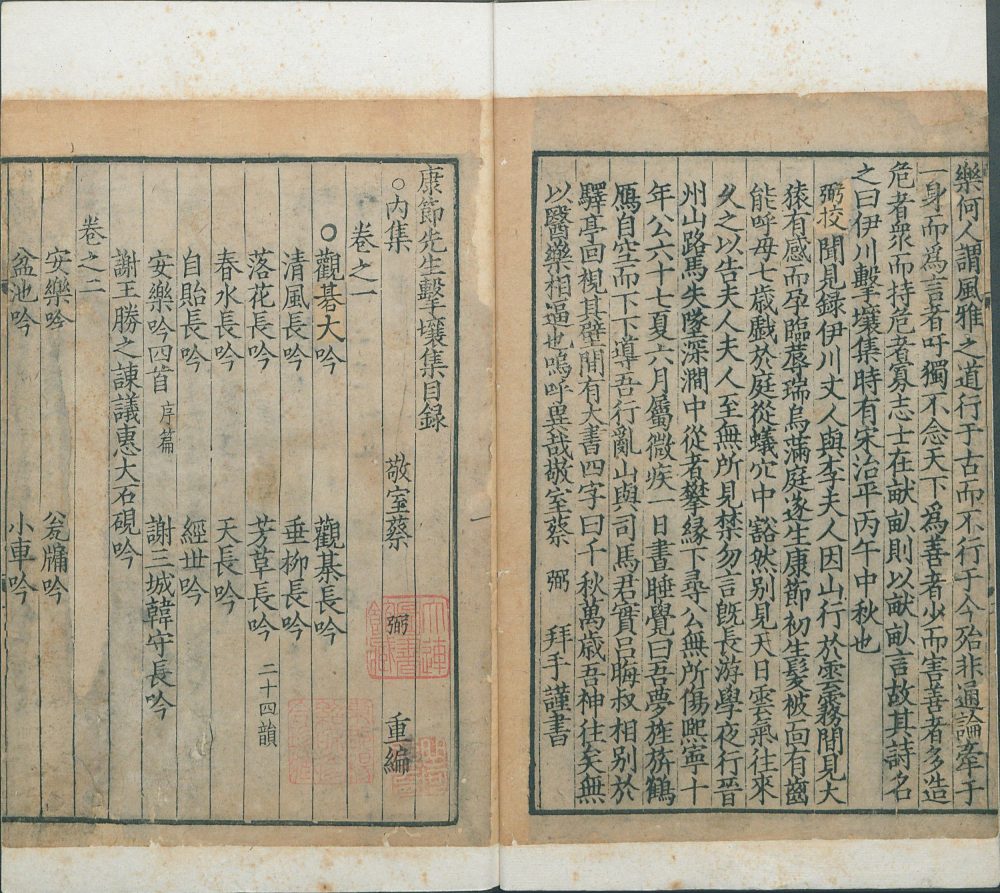 樂何人謂風雅之道行于古而不行于今殆非通論牽于
一身而爲言者吁獨不念天下爲善者少而害善者多造
危者衆而持危者寡志士在畎畝則以畎畝言故其詩名
之曰伊川擊壤集時有宋治平丙午中秋也
弼挍聞見録伊川丈人與李夫人因山行於雲霧間見大
猿有感而孕臨蓐瑞烏滿庭遂生康節初生髮被面有齒
能呼母七歳戲於庭從蟻穴中豁然别見天日雲氣往來
久之以告夫人夫人至無所見禁勿言旣長游學夜行晉
州山路馬失墜深澗中從者攀縁下尋公無所傷熈寧十
年公六十七夏六月屬微疾一日晝睡覺曰吾夢旌旂鶴
鴈自空而下下導吾行亂山與司馬君實吕晦叔相别於
驛亭回視其壁間有大書四字曰千秋萬歳吾神往矣無
以醫藥相逼也嗚呼異哉敬室蔡 弼 拜手謹書
康節先生擊壤集目録
○内集 敬室蔡 弼 重編
卷之一
○觀碁大吟 觀棊長吟
清風長吟 垂柳長吟
落花長吟 芳草長吟 二十四韻
春水長吟 天長吟
自貽長吟 經世吟
安樂吟四首 序篇 謝三城韓守長吟
謝王勝之諌議惠大石硯吟
卷之二
安樂吟 瓮牖吟
盆池吟 小車吟